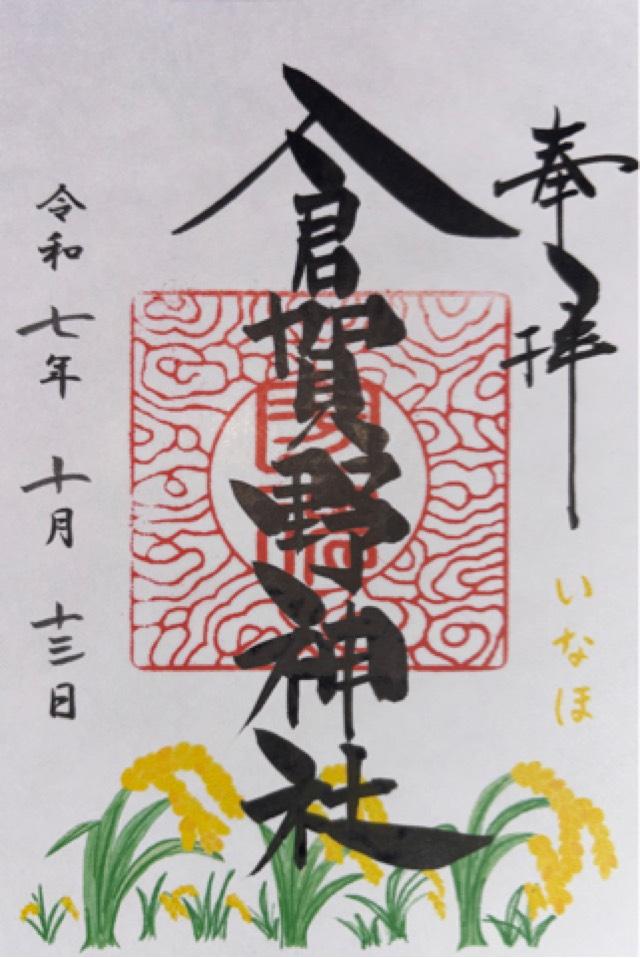 奉拝
いなほ
倉賀野神社
令和七年十月十三日